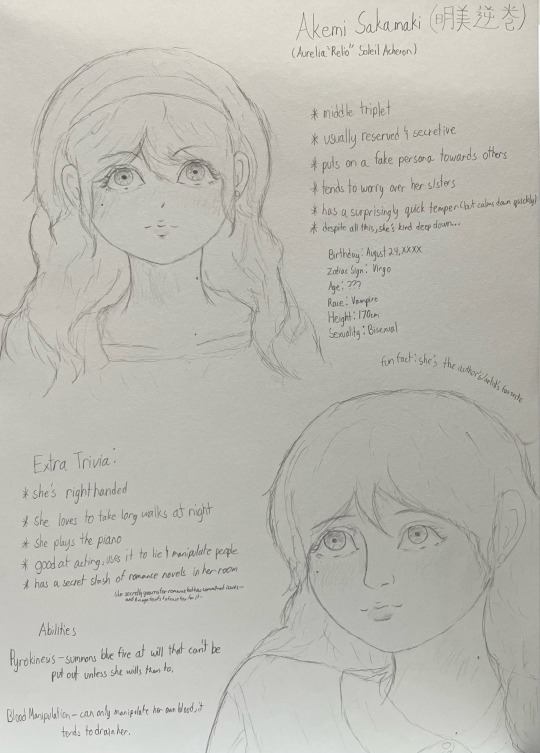 Akemi Sakamaki (明美逆巻)
(Aurelia "Relio" Soleil Acheron)
* middle triplet
* usually reserved & secretive
* puts on a fake persona towards others
* tends to worry over her sisters
* has a surprisingly quick temper (but calms down quickly)
* despite all this, she's kind deep down...
Birthday: August 24, XXXX
Zodiac Sign: Virgo
Age: ???
Race: Vampire
Height: 170cm
Sexuality: Bisexual
fun fact: she's the author's/artist's favorite
Extra Trivia:
* she's righthanded
* she loves to take long walks at night
* she plays the piano
* good at acting, uses it to lie & manipulate people
* has a secret stash of romance novels in her room
she secretly yearns for romance but has commitment issues
Abilities
Pyrokinesis - summons blue fire at will that can't be
put out unless she wills them to.
Blood Manipulation - can only manipulate her own blood, it
tends to drain her.